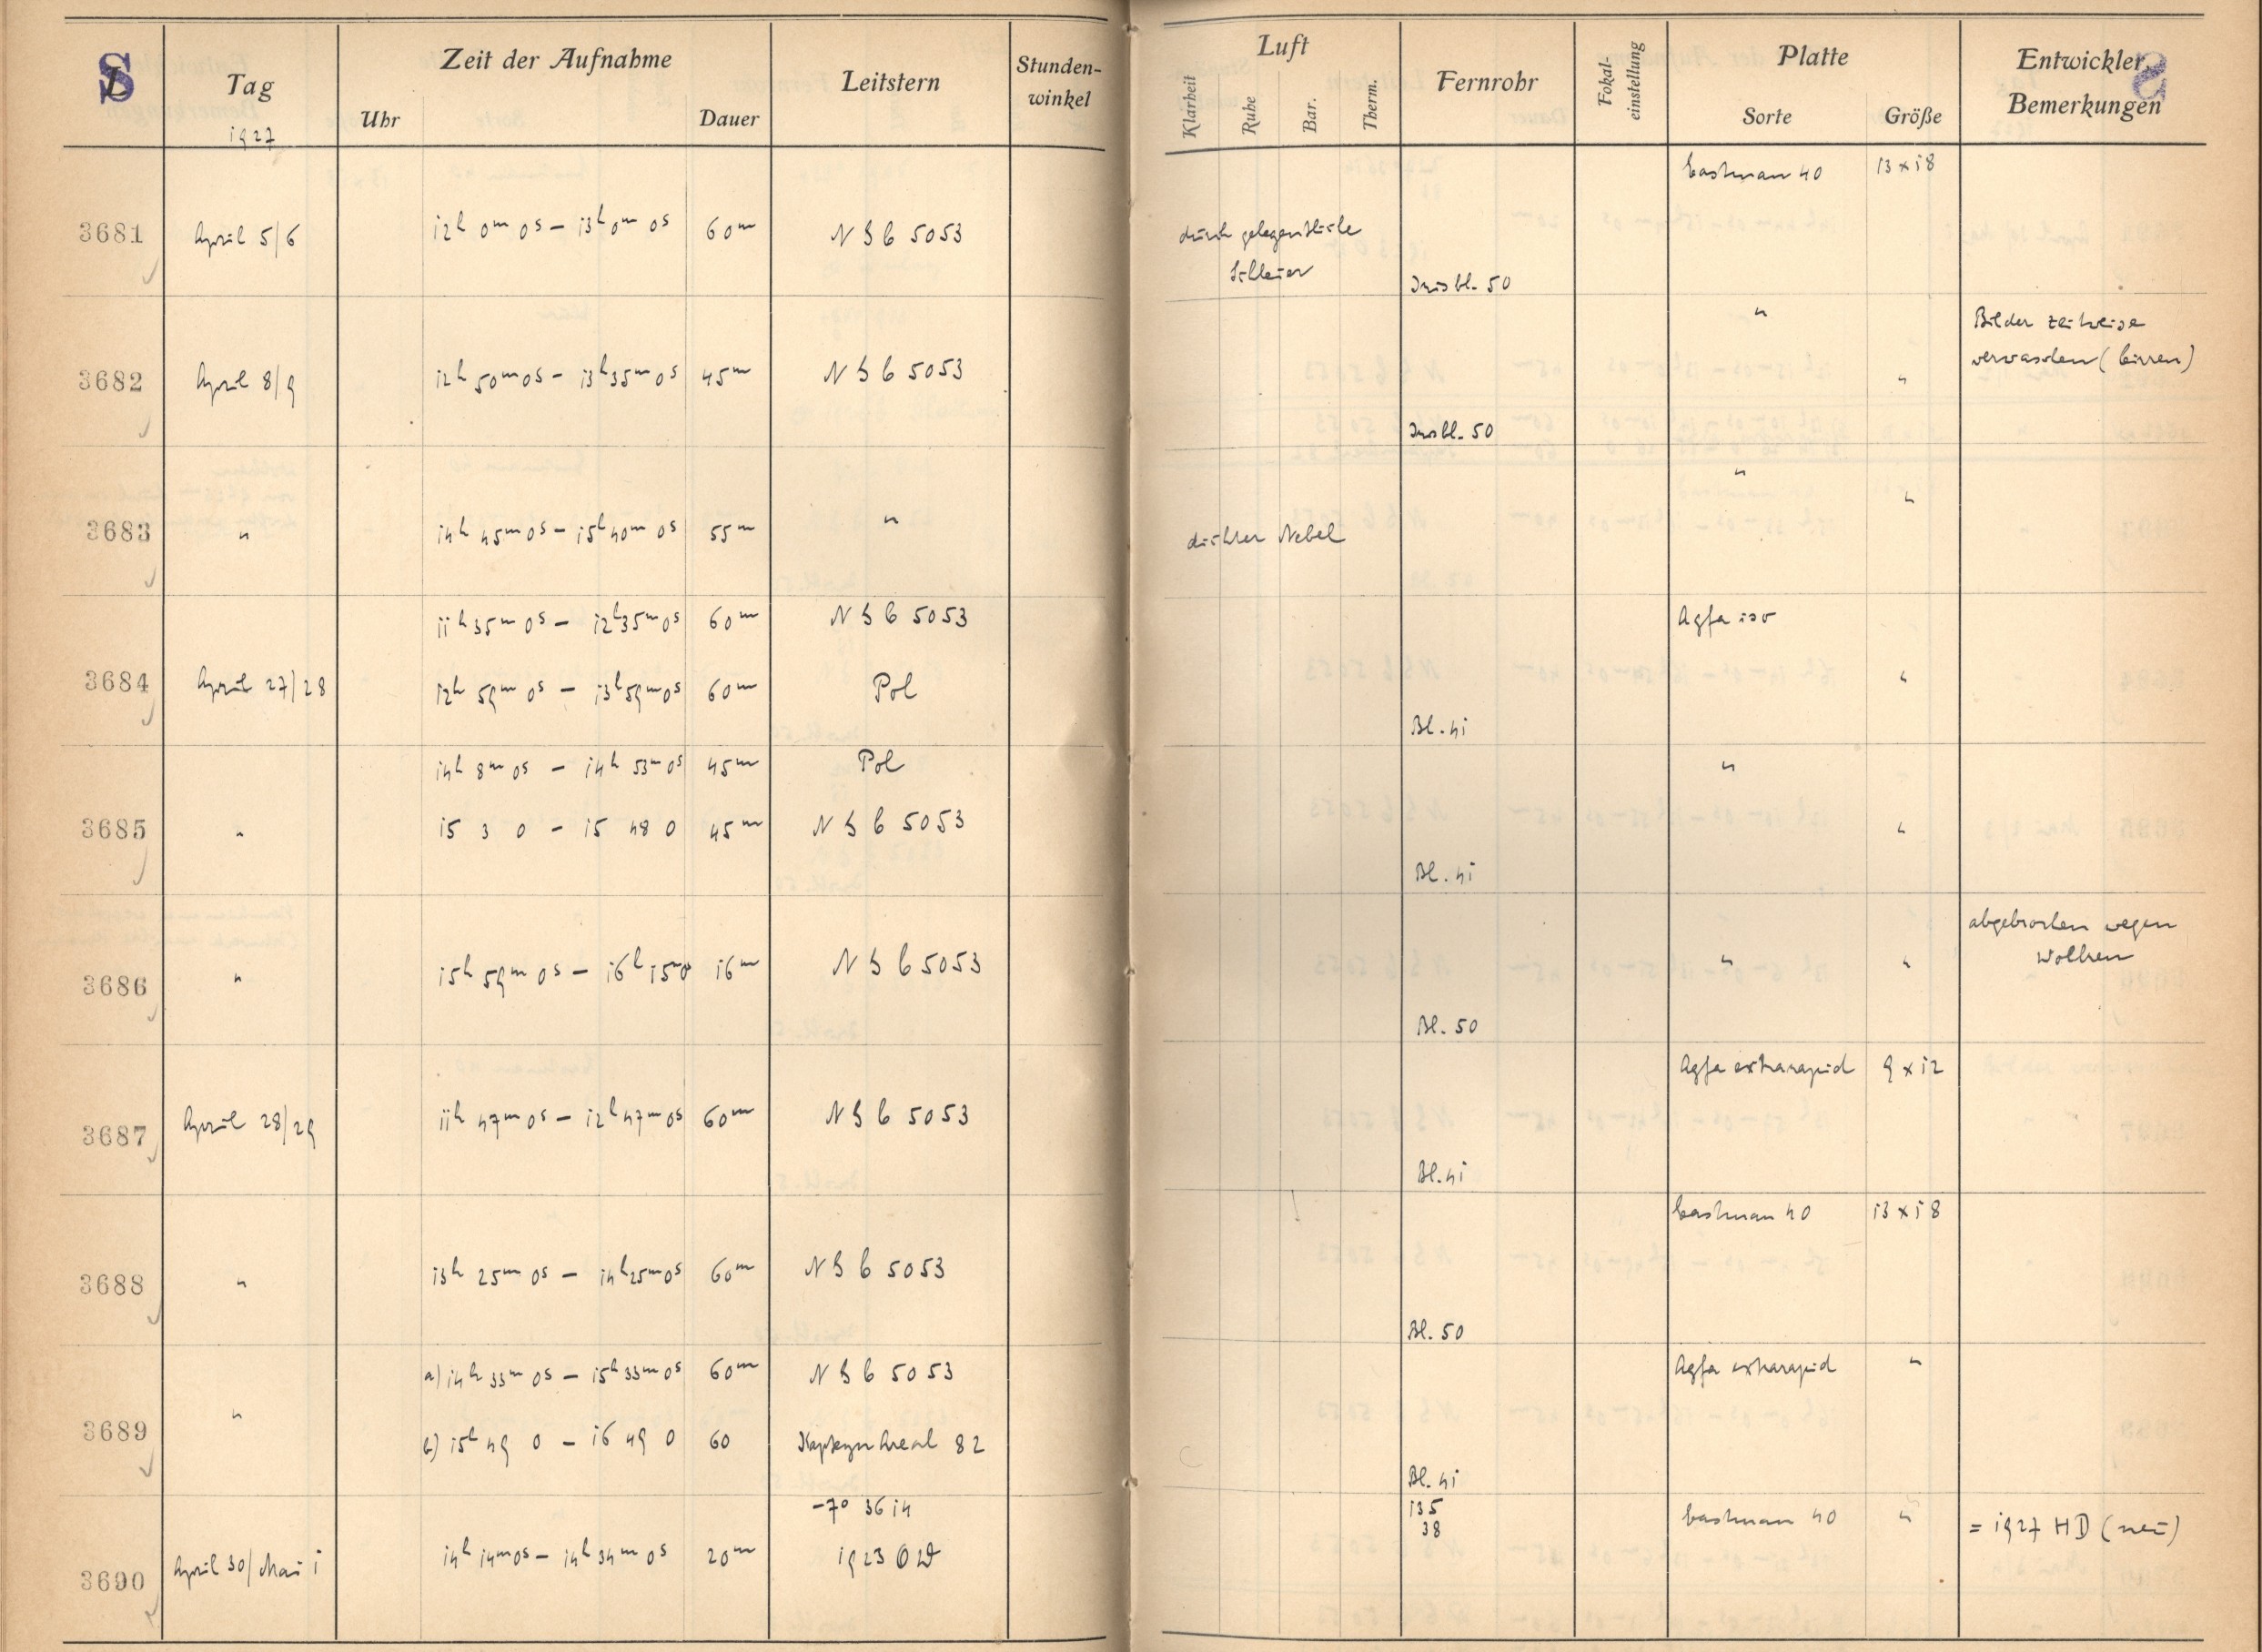 S
L Tag Zeit der Aufnahme Leitstern Stunden-winkel Luft Fernrohr Fokal-einstellung Platte Entwickler, Bemerkungen
1927 Uhr Dauer Klarheit Ruhe Bar. Therm. Sorte Größe
Eastman 40 13 x 18
3681 April 5/6 12h 0m 0s – 13h 0m 0s 60m NGC 5053 durch gelegentliche
Schleier
Irisbl. 50
" Bilder zeitweise
verwaschen (Cirren)
3682 April 8/9 12h 50m 0s – 13h 35m 0s 45m NGC 5053 "
Irisbl. 50
" "
3683 " 14h 45m 0s – 15h 40m 0s 55m " dichter Nebel
11h 35m 0s – 12h 35m 0s 60m NGC 5053 Agfa iso
3684 April 27/28 12h 59m 0s – 13h 59m 0s 60m Pol "
Bl. 41
14h 8m 0s – 14h 53m 0s 45m Pol "
3685 " 15 3 0 – 15 48 0 45m NGC 5053 "
Bl. 41
abgebrochen wegen
Wolken
3686 " 15h 59m 0s – 16h 15m 0 16m NGC 5053 " "
Bl. 50
Agfa extrarapid 9 x 12
3687 April 28/29 11h 47m 0s – 12h 47m 0s 60m NGC 5053
Bl. 41
Eastman 40 13 x 18
3688 " 13h 25m 0s – 14h 25m 0s 60m NGC 5053
Bl. 50
a) 14h 33m 0s – 15h 33m 0s 60m NGC 5053 Agfa extrarapid "
3689 " b) 15h 49 0 – 16 49 0 60 Kapteyn Areal 82
Bl. 41
-7° 36 14 135
38
Eastman 40 " = 1927 HD (neu)
3690 April 30/Mai 1 14h 14m 0s – 14h 34m 0s 20m 1923 OW